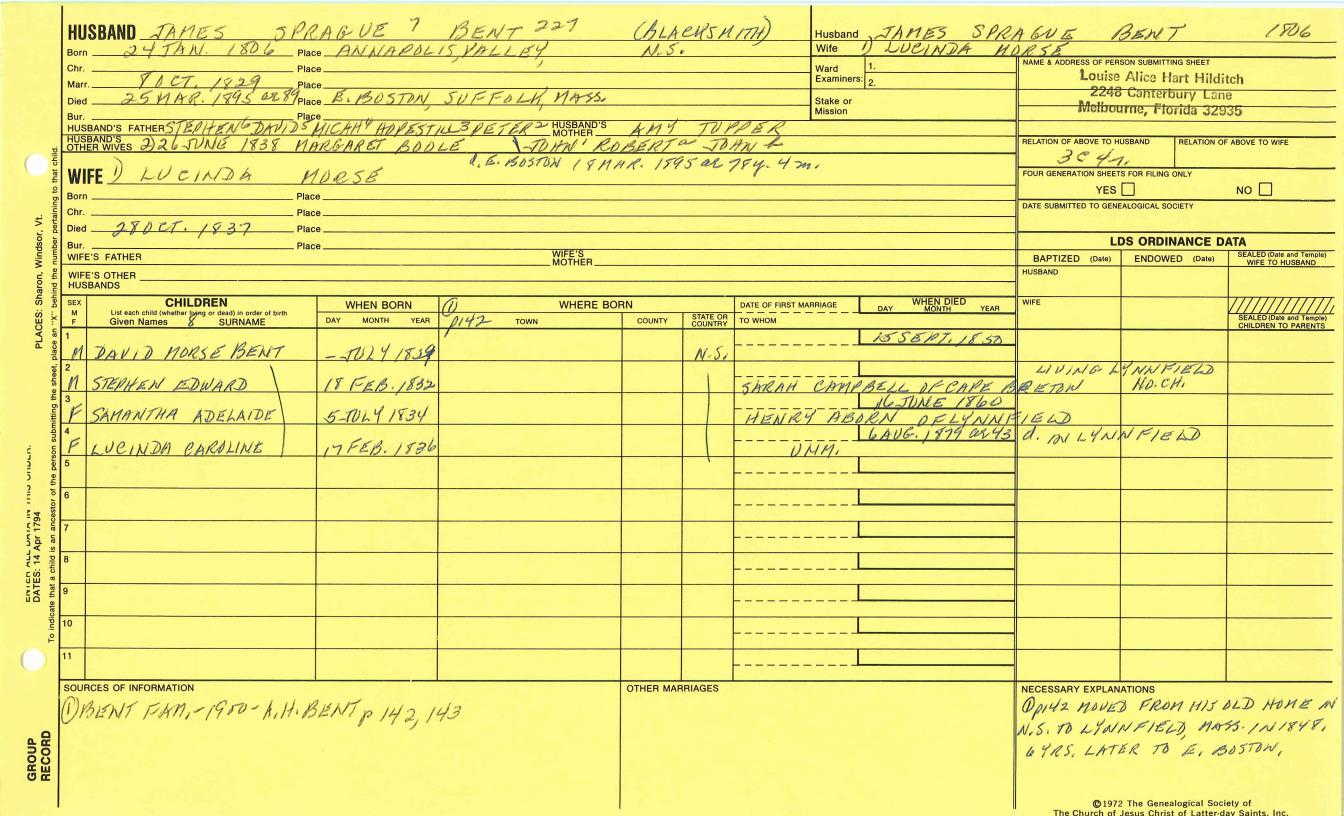 HUSBAND JAMES SPRAGUE 7 BENT 227 (BLACKSMITH)
Born 24 JAN. 1806 Place ANNAPOLIS, VALLEY, N.S.
Chr. Place
Marr. 8 OCT. 1829 Place
Died 25 MAR. 1895 ae 89 Place E. BOSTON, SUFFOLK, MASS.
Bur. Place
HUSBAND'S FATHER STEPHEN6 DAVID5 MICAH4 HOPESTILL3 PETER2 HUSBAND'S MOTHER AMY TUPPER
HUSBAND'S OTHER WIVES 2) 26 JUNE 1838 MARGARET BOOLE \ JOHN1 ROBERT a JOHN b
d. E. BOSTON 18 MAR. 1895 ae 78y. 4 m.
WIFE 1) LUCINDA MORSE
Born Place
Chr. Place
Died 28 OCT. 1837 Place
Bur. Place
WIFE'S FATHER WIFE'S MOTHER
WIFE'S OTHER HUSBANDS
Husband JAMES SPRAGUE BENT 1806
Wife 1) LUCINDA MORSE
Ward Examiners: 1.
2.
Stake or Mission
NAME & ADDRESS OF PERSON SUBMITTING SHEET
Louise Alice Hart Hilditch
2248 Canterbury Lane
Melbourne, Florida 32935
RELATION OF ABOVE TO HUSBAND RELATION OF ABOVE TO WIFE
3C 4r.
FOUR GENERATION SHEETS FOR FILING ONLY
YES NO
DATE SUBMITTED TO GENEALOGICAL SOCIETY
LDS ORDINANCE DATA
BAPTIZED (Date) ENDOWED (Date) SEALED (Date and Temple) WIFE TO HUSBAND
HUSBAND
WIFE
SEALED (Date and Temple) CHILDREN TO PARENTS
SEX M F CHILDREN WHEN BORN WHERE BORN DATE OF FIRST MARRIAGE WHEN DIED
List each child (whether living or dead) in order of birth
Given Names 8 SURNAME DAY MONTH YEAR ① p142 TOWN COUNTY STATE OR COUNTRY TO WHOM DAY MONTH YEAR
1 M DAVID MORSE BENT – JULY 1829 N.S. 15 SEPT. 1850
2 M STEPHEN EDWARD 18 FEB. 1832 SARAH CAMPBELL OF CAPE BRETON LIVING LYNNFIELD NO. CH.
3 F SAMANTHA ADELAIDE 5 JULY 1834 HENRY ABORN OF LYNNFIELD 16 JUNE 1860
4 F LUCINDA CAROLINE 17 FEB. 1836 UNM. 6 AUG. 1879 ae 43 d. IN LYNNFIELD
5
6
7
8
9
10
11
SOURCES OF INFORMATION
① BENT FAM. - 1900 - A.H. BENT p 142, 143
OTHER MARRIAGES
NECESSARY EXPLANATIONS
① p142 MOVED FROM HIS OLD HOME IN
N.S. TO LYNNFIELD, MASS. IN 1848.
6 YRS. LATER TO E. BOSTON.
©1972 The Genealogical Society of
The Church of Jesus Christ of Latter-day Saints, Inc.
GROUP RECORD
ENTER ALL DATA IN THIS ORDER:
DATES: 14 Apr 1794
PLACES: Sharon, Windsor, Vt.
To indicate that a child is an ancestor of the person submitting the sheet, place an "X" behind the number pertaining to that child.